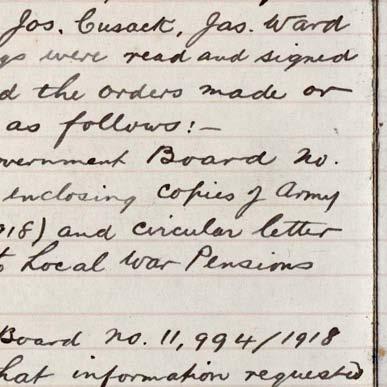 Jos. Cusack, Jas. Ward
gs were read and signed
d the orders made or
as follows:-
overnment Board No.
enclosing copies of Army
918) and circular letter
to Local War Pensions
Board No. 11,994/1918
hat information requested